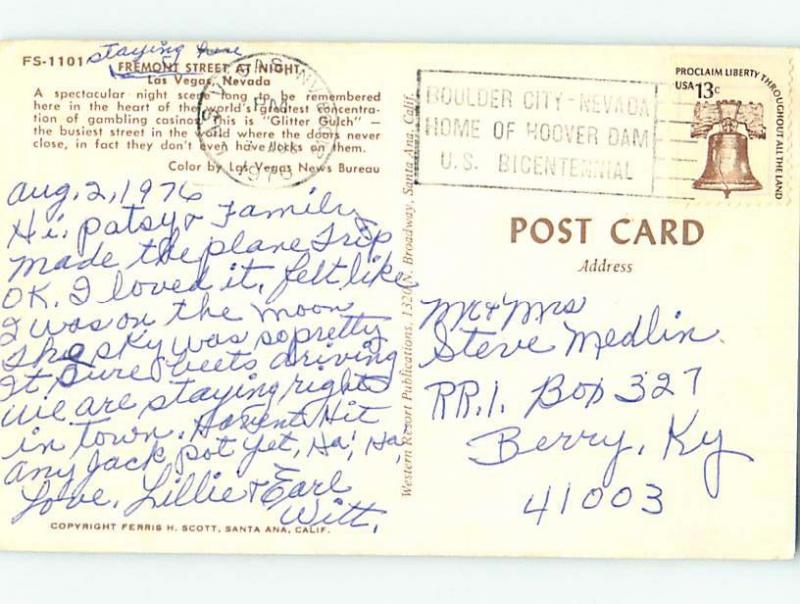 staying here
FS-1101
FREMONT STREET AT NIGHT
Las Vegas, Nevada
A spectacular night scene long to be remembered
here in the heart of the world's greatest concentra-
tion of gambling casinos. This is "Glitter Gulch" —
the busiest street in the world where the doors never
close, in fact they don't even have locks on them.
Color by Las Vegas News Bureau
Aug. 2, 1976
Hi. Patsy & Family
Made the plane Trip
OK. I loved it, felt like
I was on the Moon
The sky was so pretty
It sure beets driving
We are staying right
in town. Havent Hit
any Jack pot yet, Ha, Ha,
Love. Lillie & Earl
Witt.
COPYRIGHT FERRIS H. SCOTT, SANTA ANA, CALIF.
Western Resort Publications, 1320 N. Broadway, Santa Ana, Calif.
PM
1976
BOULDER CITY - NEVADA
HOME OF HOOVER DAM
U.S. BICENTENNIAL
PROCLAIM LIBERTY THROUGHOUT ALL THE LAND
USA 13c
POST CARD
Address
Mr & Mrs
Steve Medlin
RR.1. Box 327
Berry, Ky
41003